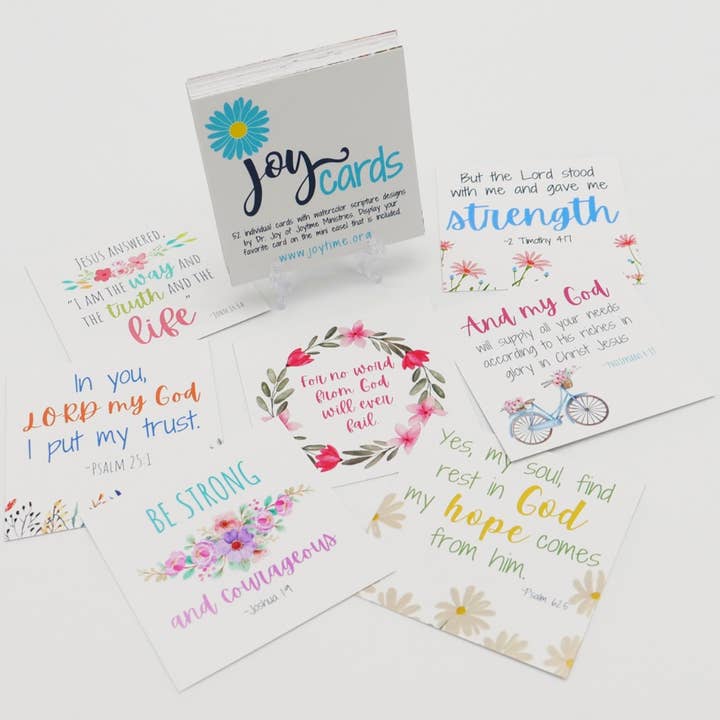 Joy
cards
52 individual cards with watercolor scripture designs
by Dr. Joy of Joytime Ministries. Display your
favorite card on the mini easel that is included.
www.joytime.org
But the Lord stood
with me and gave me
strength
-2 Timothy 4:17
JESUS ANSWERED,
"I AM THE way AND
THE truth AND THE
life"
And my God
will supply all your needs
according to His riches in
glory in Christ Jesus
In you,
LORD my God
I put my trust.
-PSALM 25:1
For no word
from God
will ever
fail.
Yes, my soul, find
rest in God
my hope comes
from him.
-Psalm 62:5
BE STRONG
and courageous
-Joshua 1:9